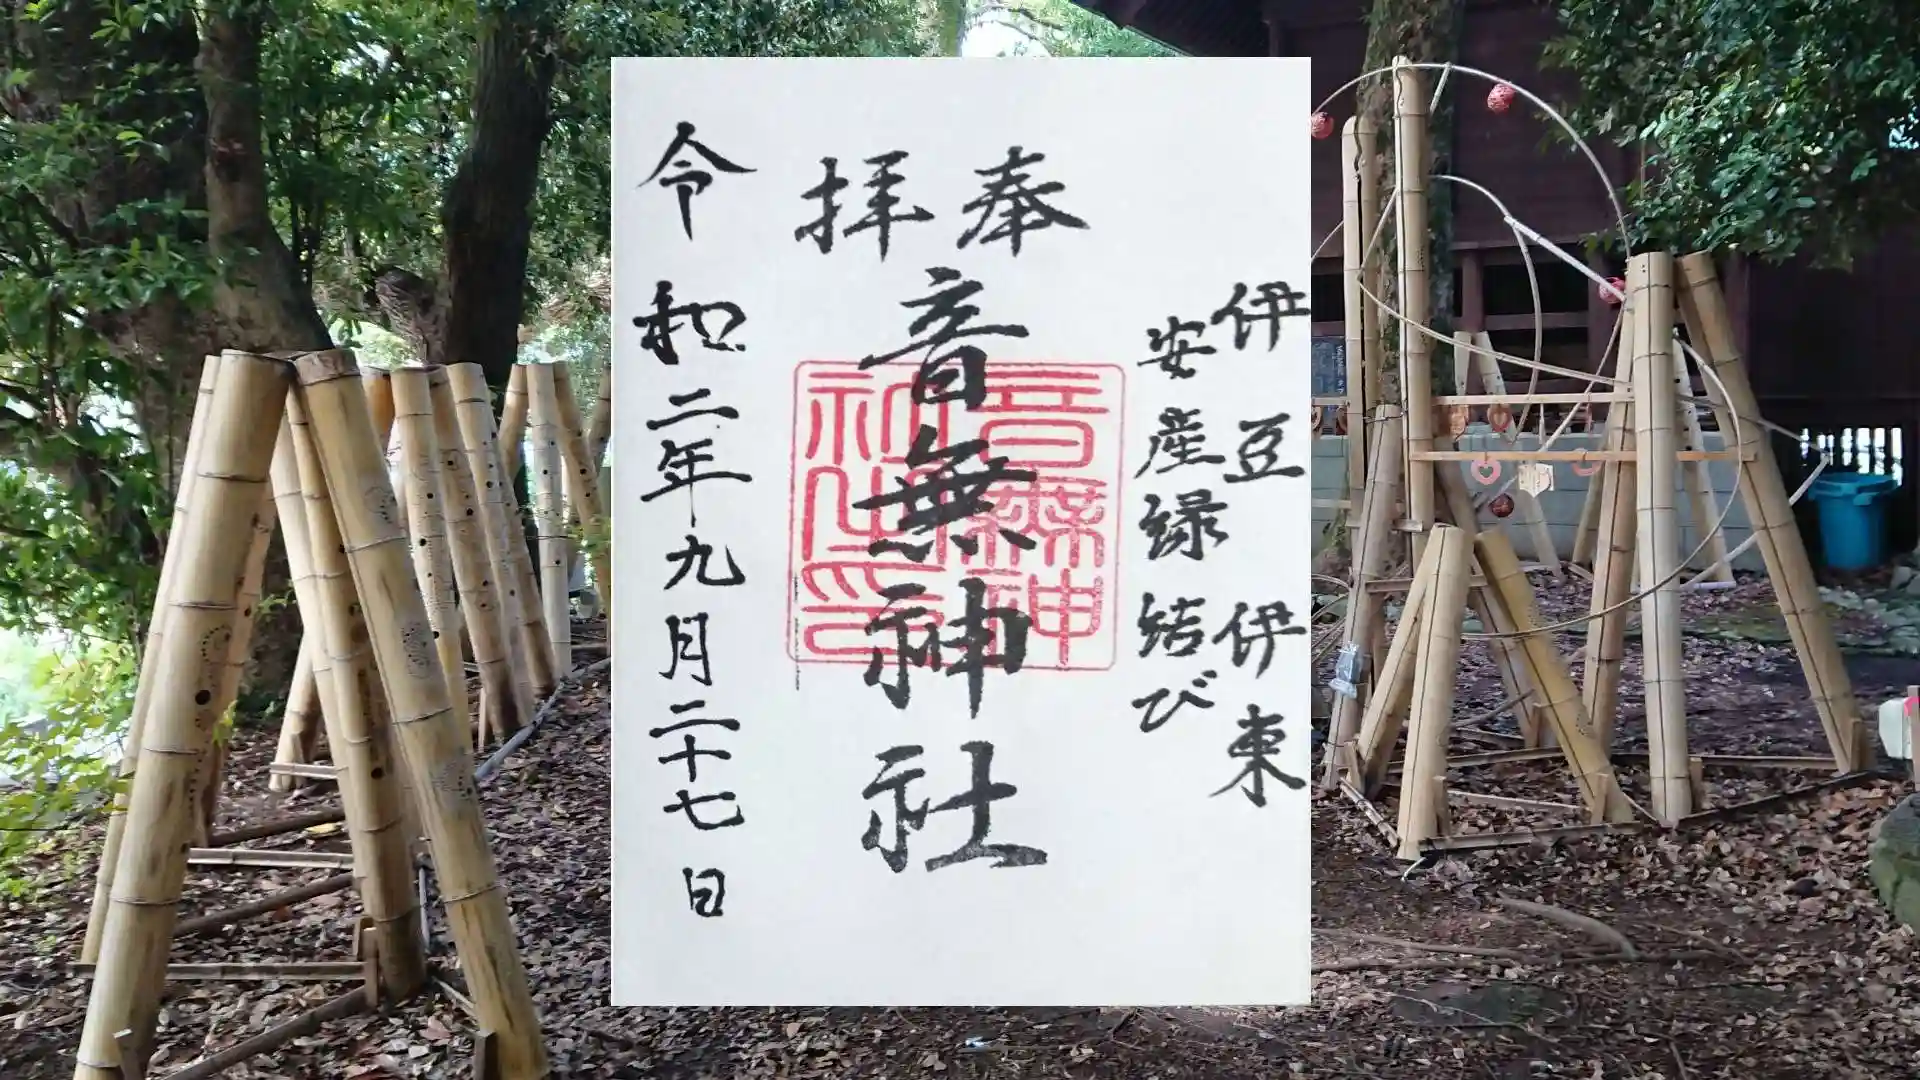 伊豆伊東
安産縁結び
奉拝
音無神社
音無神社之印
令和二年九月二十七日